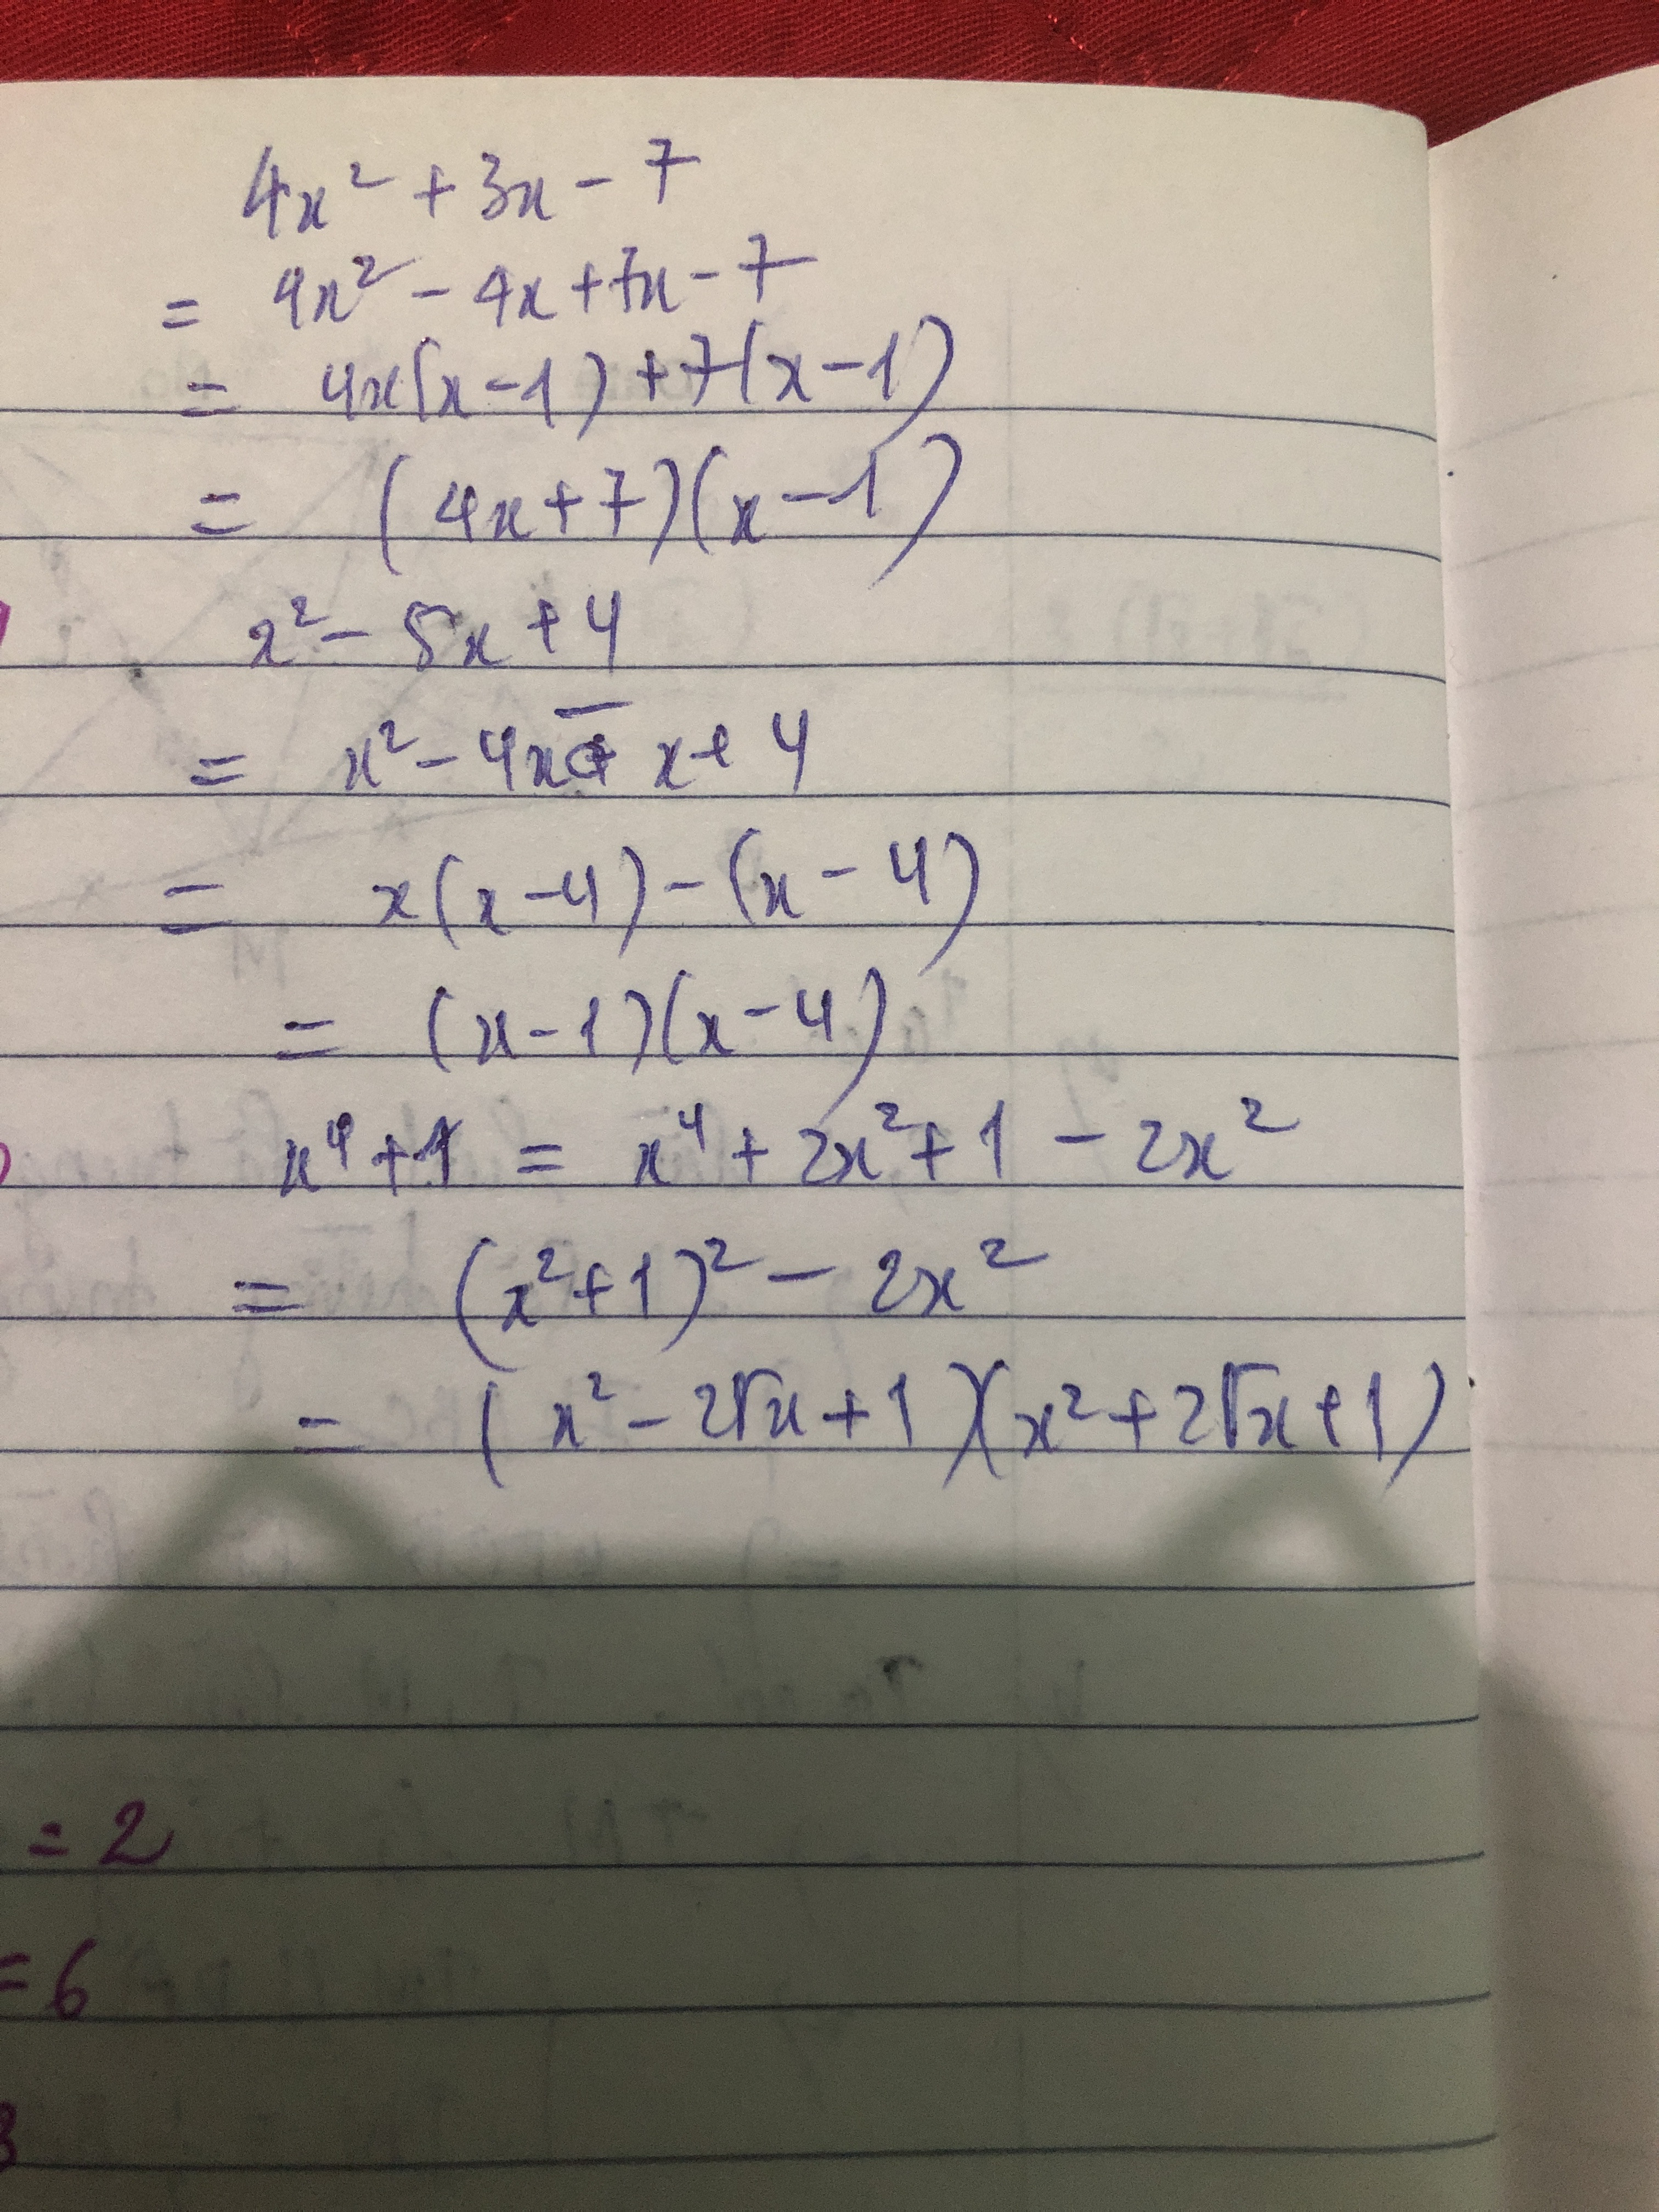 4x² + 3x - 7
= 4x² - 4x + 7x - 7
= 4x(x-1) + 7(x-1)
= (4x+7)(x-1)
x² - 5x + 4
= x² - 4x - x + 4
= x(x-4) - (x-4)
= (x-1)(x-4)
x⁴+1 = x⁴ + 2x² + 1 - 2x²
= (x²+1)² - 2x²
= (x² - 2√x + 1)(x² + 2√x + 1)
= 2
= 6